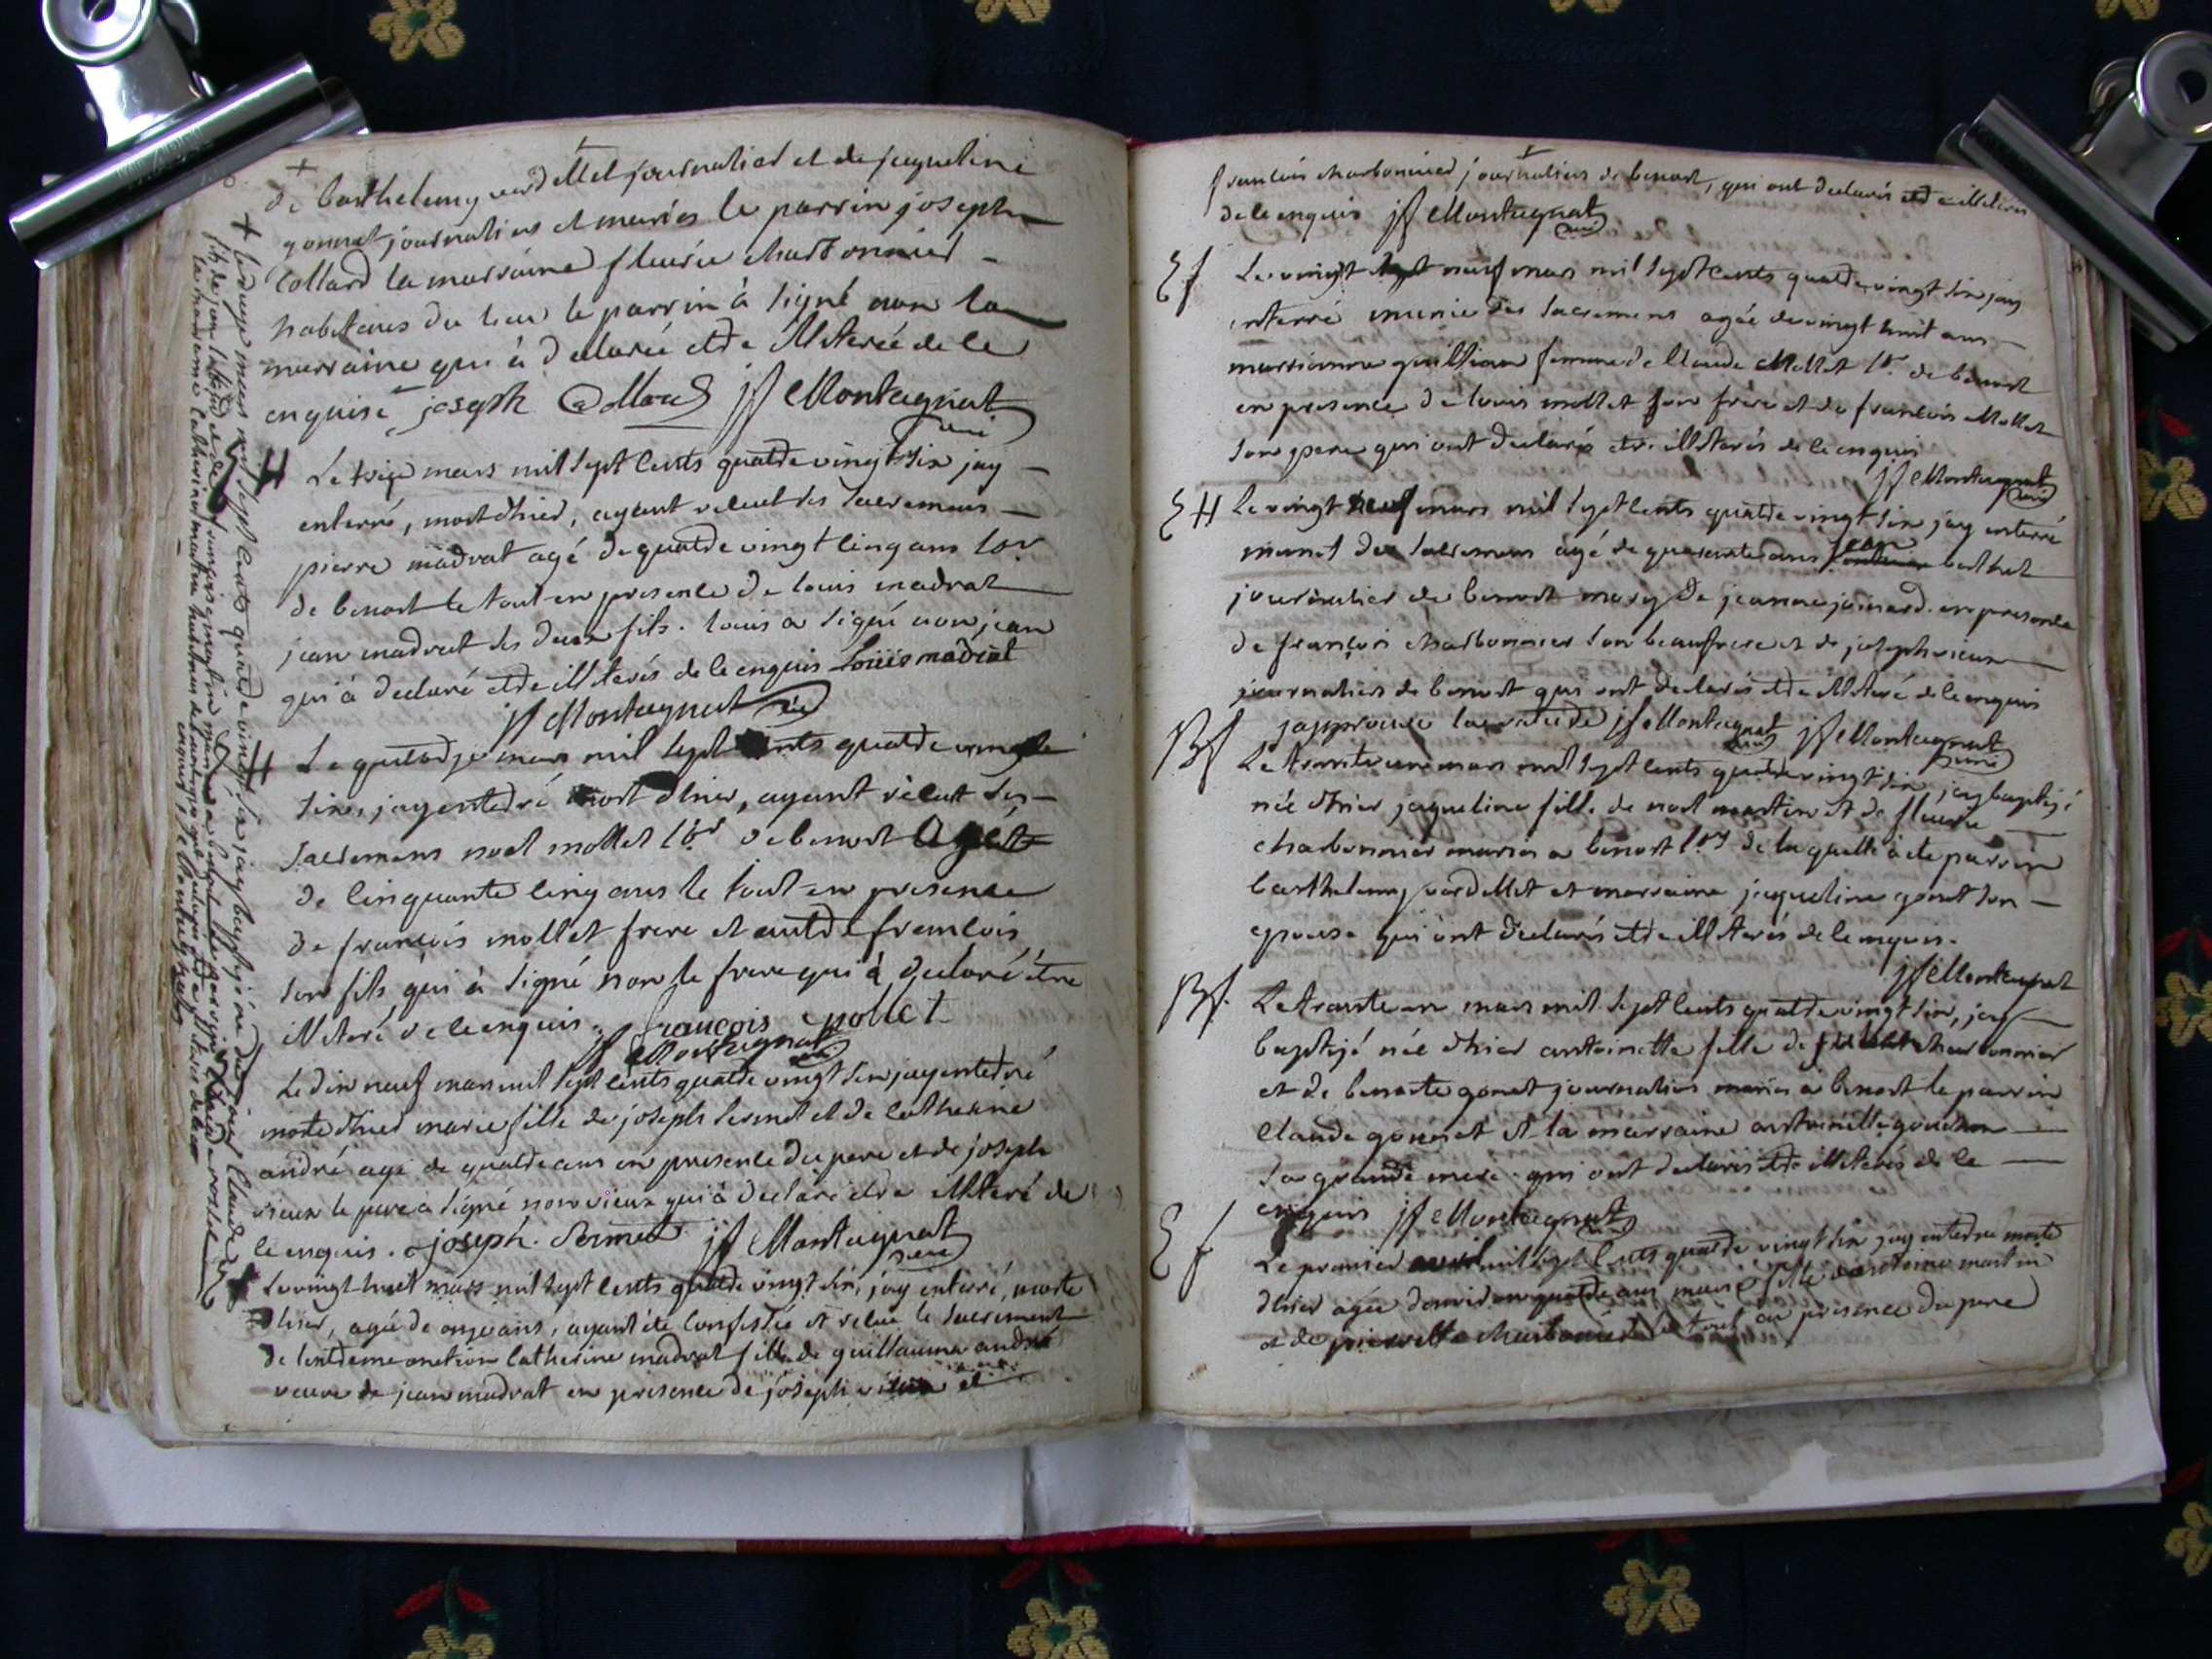 de barthelemy verdellet journalier et de jaqueline
gonnet journaliers et mariés le parrin joseph
Collard la marraine fleurie charbonnier
habitans du lieu le parrin à signé non la
marraine qui à declarée etre illiterée de ce
enquise joseph Collard jf Montagnat
curé
H Le treize mars mil sept cents quatre vingt six jay
enterré, mort d'hier, ayant recut les sacremens
pierre madrat agé de quatre vingt cinq ans lor
de benost le tout en presence de louis madrat
jean madrat ses deux fils. louis a signé non jean
qui à declaré etre illiterés de ce enquis Louis madrat
jf Montagnat curé
H Le quatorze mars mil sept cents quatre vingt
six, jay enterré mort d'hier, ayant recut les
sacremens noel mollet lor de benost agé
de cinquante cinq ans le tout en presence
de francois mollet frere et autre francois
son fils qui à signé non le frere qui à declaré être
illiteré de ce enquis. francois mollet
jf Montagnat curé
Le dix neuf mars mil sept cents quatre vingt six jay enterré
morte d'hier marie fille de joseph sermet et de catherine
andré agé de quatre ans en presence du pere et de joseph
vieux le pere a signé non vieux qui à declaré etre illiteré de
ce enquis. joseph. Sermet jf Montagnat
curé
Le vingt huit mars mil sept cents quatre vingt six, jay enterré, morte
d'hier, agée de onze ans, ayant été confessée et recue le sacrement
de l'extreme onction catherine madrat fille de guillaume andré
veuve de jean madrat en presence de joseph vieux et
+ Le douze mars mil sept cents quatre vingt six jay baptizé né du jour Claude
fils de jean
la marraine catherine martin habitans
enquis jf Montagnat
francois charbonnier journaliers de benost, qui ont declarés etre illiterés
de ce enquis jf Montagnat
curé
E f Le vingt neuf mars mil sept cents quatre vingt six jay
enterré munie des sacremens agée de vingt huit ans
marrianne guillian femme de Claude Mollet lr. de benost
en presence de louis mollet son frère et de francois Mollet
son pere qui ont declarés etre illiterés de ce enquis
jf Montagnat
curé
E H Le vingt neuf mars mil sept cents quatre vingt six jay enterré
munit des sacremens agé de quarante ans jean berthet
journalier de benost mary de jeanne joinard. en presence
de françois charbonnier son beaufrere et de joseph vieux
journaliers de benost qui ont declarés etre illiteré de ce enquis
japprouve la rature jf Montagnat jf Montagnat
curé curé
B f Le trente un mars mil sept cents quatre vingt six jay baptizé
née d'hier jaqueline fille de noel martin et de fleurie
charbonnier mariés a benost lors de laquelle à été parrin
barthelemy verdellet et marraine jaqueline gonet son
epouse qui ont declarés etre illiterés de ce enquis.
jf Montagnat
B f. Le trente un mars mil sept cents quatre vingt six, jay
baptizé née d'hier antoinette fille de charbonnier
et de benoite gonet journaliers mariés a benost le parrin
Claude gonnet et la marraine antoinette goudon
sa grande mere. qui ont declarés etre illiterés de ce
enquis jf Montagnat
curé
E f Le premier avril mil sept cents quatre vingt six jay enterré morte
d'hier agée d'environ quatre ans marie fille d'antoine martin
et de pierrette charbonnier le tout en presence du pere